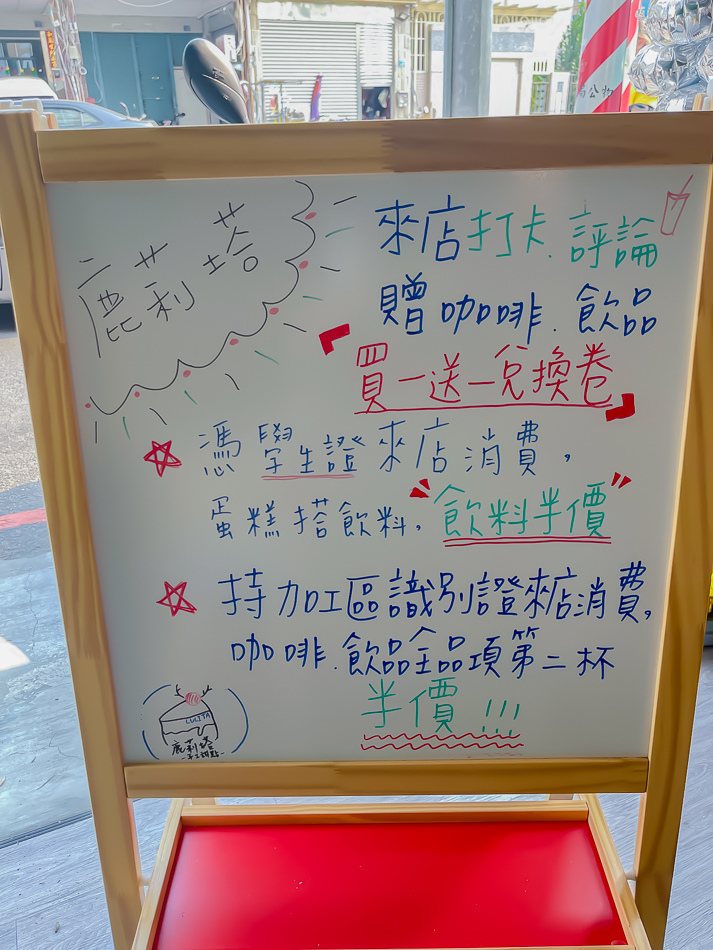 鹿莉塔
來店打卡.評論
贈咖啡.飲品
買一送一兌換卷
憑學生證來店消費,
蛋糕搭飲料,飲料半價
持加工區識別證來店消費,
咖啡.飲品全品項第二杯
半價!!!
LULITA
鹿莉塔
-手工甜點-